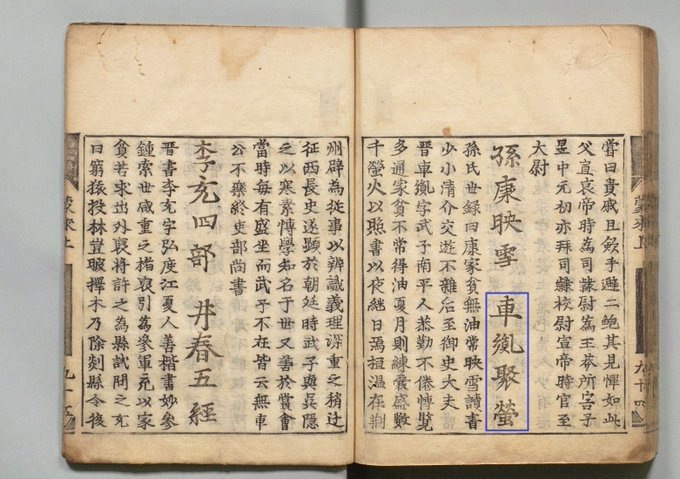 蒙求上
嘗曰貴戚且斂手避二鮑其見憚如此
父宣哀帝時為司隸尉為王莽所害子
昱中元初亦拜司隸校尉宣帝時官至
大尉
孫康映雪 車胤聚螢
孫氏世録曰康家貧無油常映雪讀書
少小清介交遊不雜后至御史大夫
晉車胤字武子南平人恭勤不倦博覽
多通家貧不常得油夏月則練囊盛數
十螢火以照書以夜継日焉桓温在荆
州辟為從事以辨識義理深重之稍迁
征西長史遂顯於朝廷時武子與吳隠
之以寒素博學知名于世又善於賞會
當時每有盛坐而武子不在皆云無車
公不樂終吏部尚書
李充四部 井春五經
晉書李充字弘度江夏人善楷書妙參
鍾索世咸重之褚裒引為參軍充以家
貧苦求出外裒將許之為縣試問之充
曰窮猿投林豈暇擇木乃除剡縣令後
蒙求上